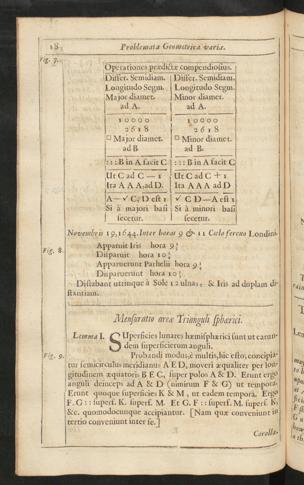 18
Problemata Geometrica varia.
Fig. 7.
Operationes prædictæ compendiosius.
Differ. Semidiam. Differ. Semidiam.
Longitudo Segm. Longitudo Segm.
Major diamet. Minor diamet.
ad A. ad A.
10000 10000
2618 2618
□ Major diamet. □ Minor diamet.
ad B ad B.
:::B in A facit C :::B in A facit C
Ut C ad C — 1 Ut C ad C + 1
Ita AAA, ad D. Ita AAA ad D
A—√C, D est 1 √C D—A est 1
Si à majori basi Si à minori basi
secetur. secetur.
Novembris 19, 1644. Inter horas 9 & 11 Cælo sereno Londini.
Fig. 8.
Apparuit Iris hora
Disparuit hora
Apparuerunt Parhelii hora
Disparuerunt hora
Distabant utrimque à Sole 12 ulnas, & Iris ad duplam di-
stantiam.
Mensuratio areæ Trianguli sphærici.
Lemma I. SUperficies lunares hæmisphærii sunt ut earun-
dem superficierum anguli.
Fig. 9.
Probandi modus, è multis, hic esto, concipia-
tur semicirculus meridianus AED, moveri æqualiter per lon-
gitudinem æquatoris BEC, super polos A & D. Erunt ergo
anguli deinceps ad A & D (nimirum F & G) ut tempora.
Erunt quoque superficies K & M, ut eadem tempora. Ergo
F. G :: superf. K. superf. M. Et G. F :: superf. M. superf. K,
&c. quomodocunque accipiantur. [Nam quæ conveniunt in
tertio conveniunt inter se.]
Corolla-